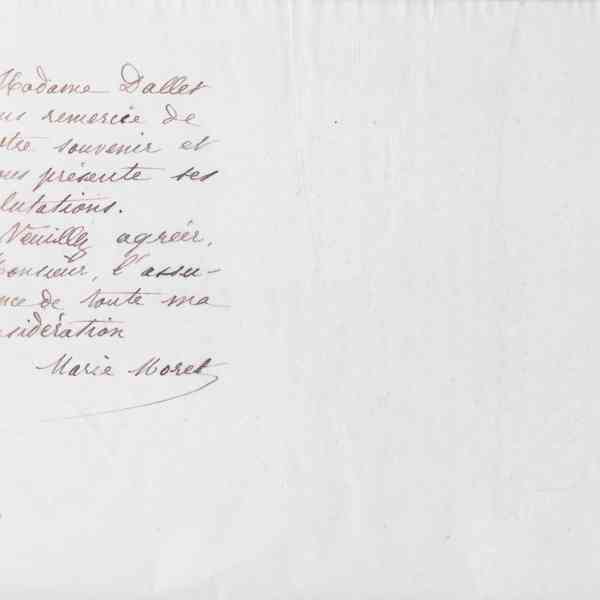 Madame Dallet
us remercie de
tre souvenir et
ous présente ses
lutations.
Veuillez agréer,
Monsieur, l'assu-
nce de toute ma
nsidération
Marie Moret